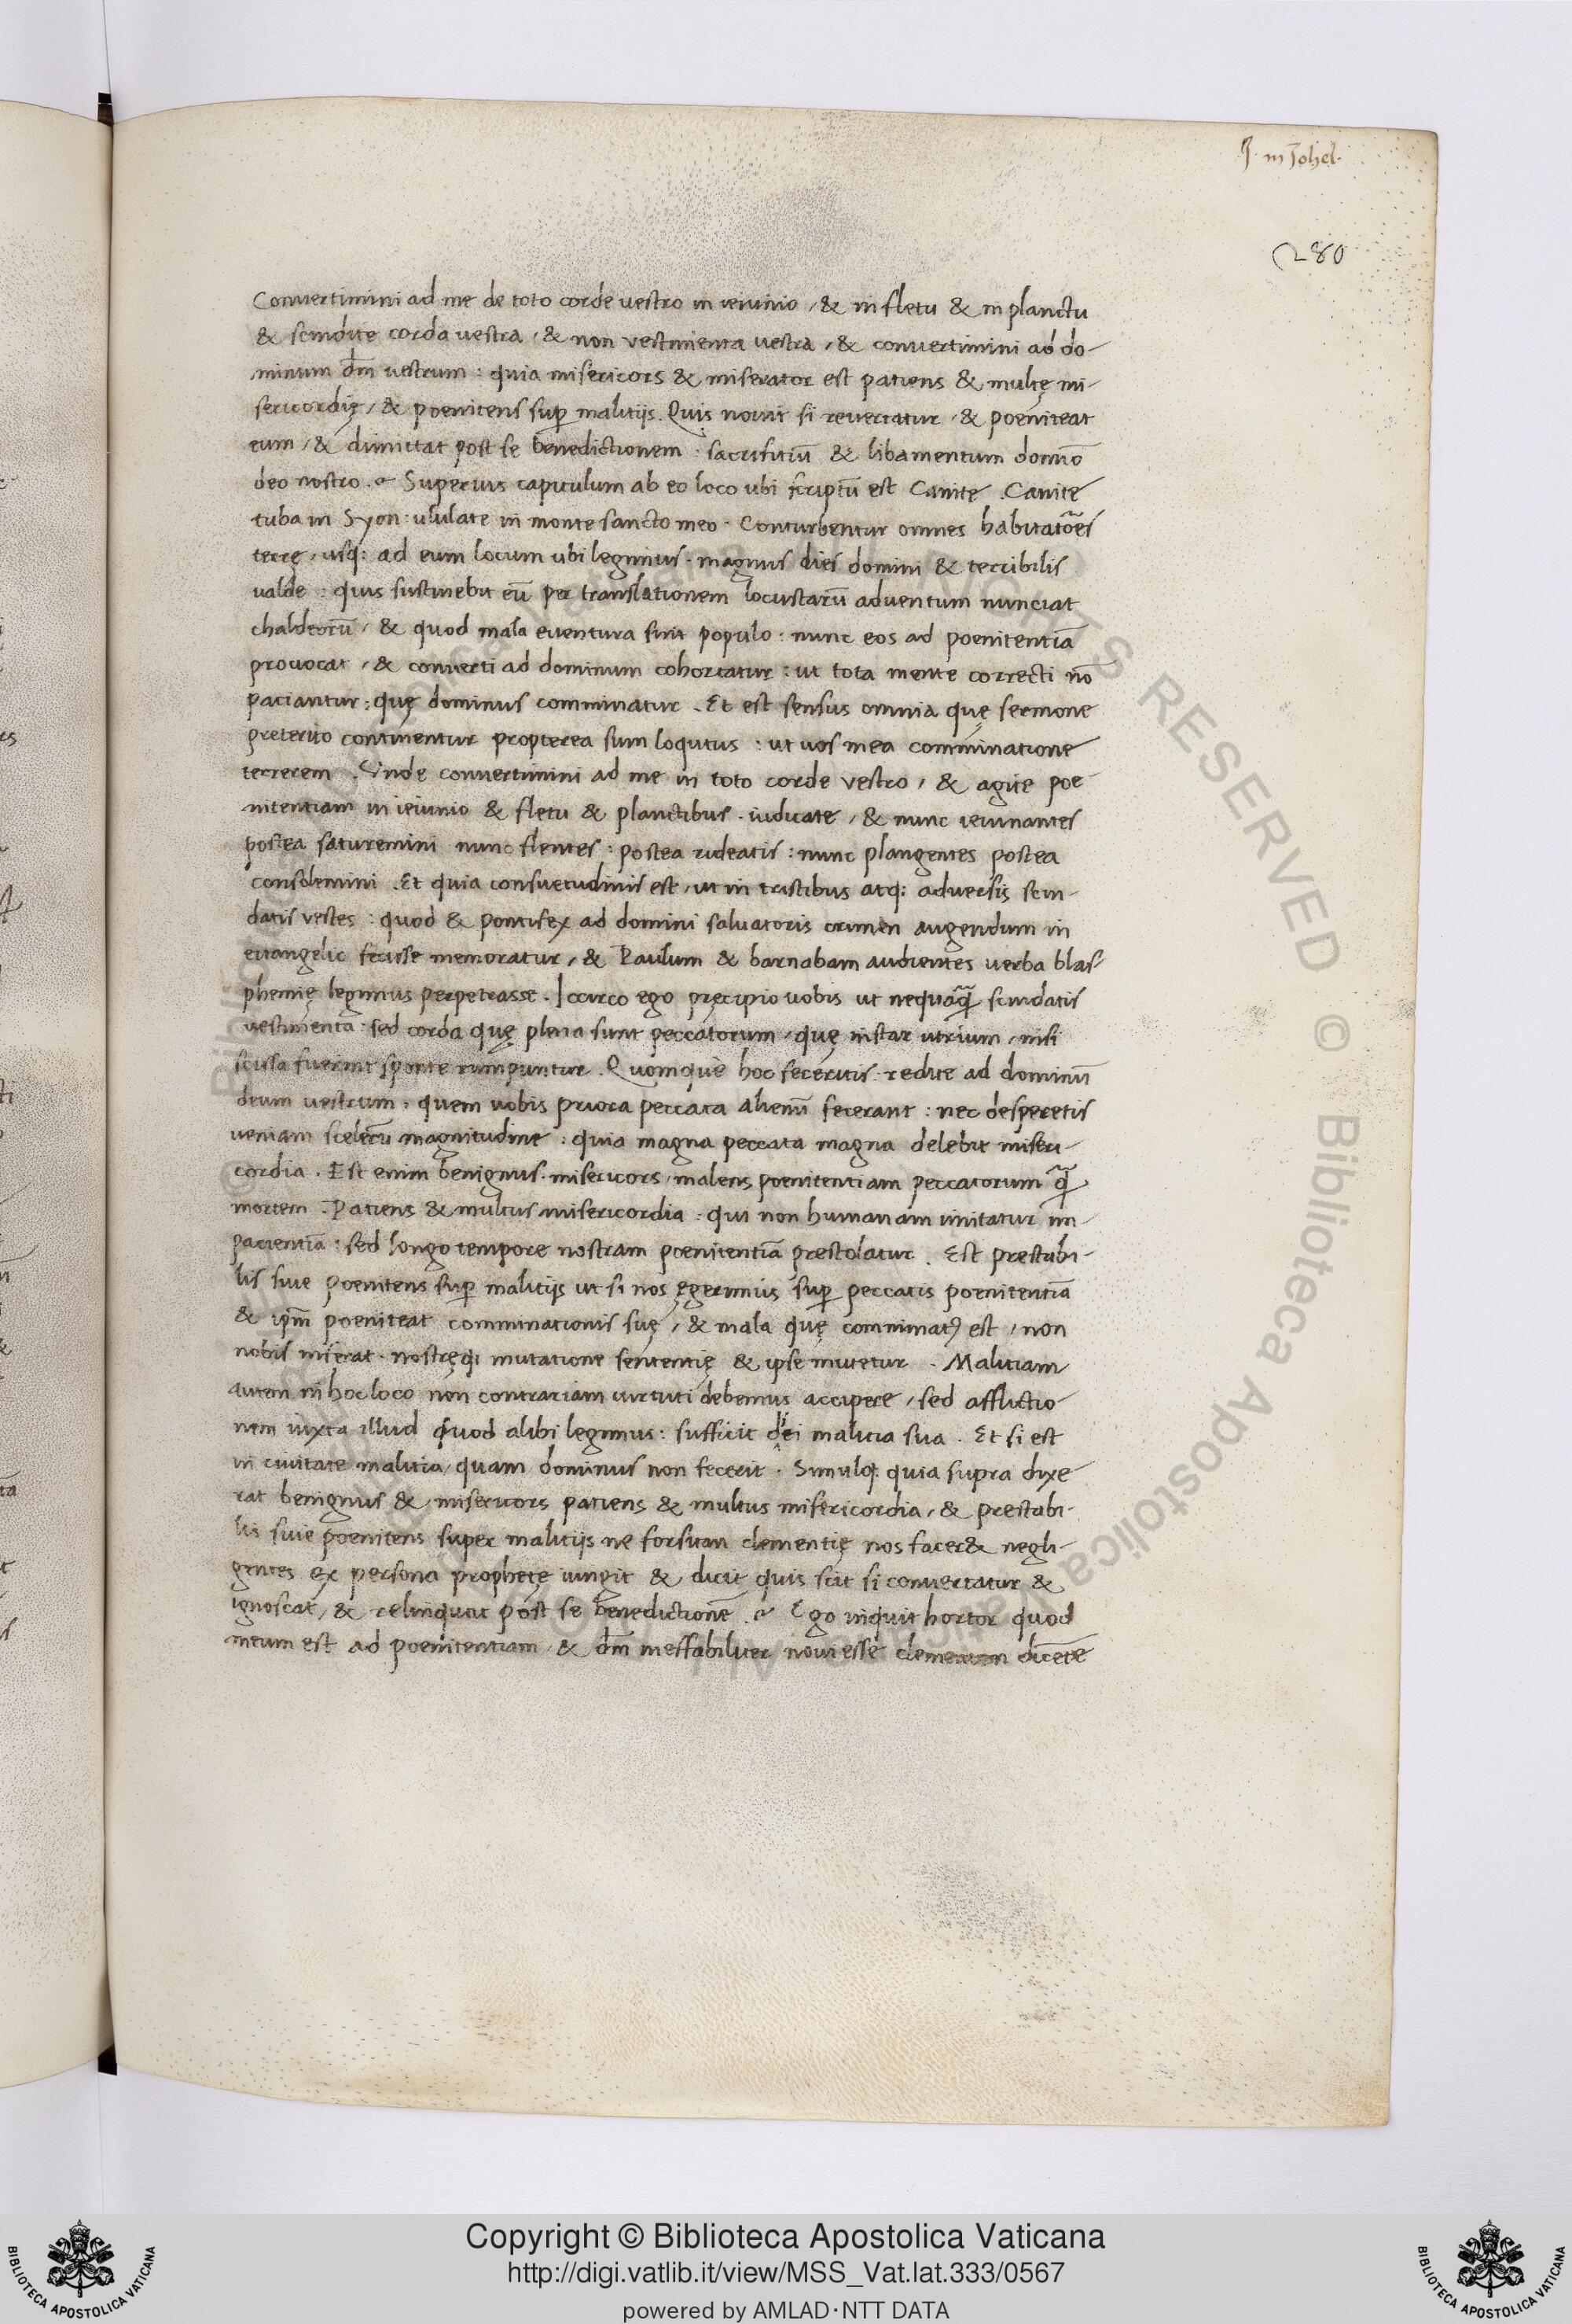 in Johel.
280
Convertimini ad me de toto corde vestro in ieiunio, & in fletu & in planctu
& scindite corda vestra, & non vestimenta vestra, & convertimini ad do-
minum dm̄ vestrum: quia misericors & miserator est patiens & multę mi-
sericordię, & poenitens sup̱ malitijs. Quis novit si revertatur, & poeniteat
eum, & dimittat post se benedictionem: sacrifitiū & libamentum domīo
deo nostro. Superius capitulum ab eo loco ubi scriptū est Canite. Canite
tuba in Syon: ululate in monte sancto meo. Conturbentur omnes habitatōes
terrę, usq: ad eum locum ubi legimus. magnus dies domini & terribilis
valde: quis sustinebit eū per translationem locustarū adventum nunciat
chaldeorū, & quod mala eventura sint populo: nunc eos ad poenitentiā
provocat, & converti ad dominum cohortatur: ut tota mente correcti nō
paciantur: quę dominus comminatur. Et est sensus omnia quę sermone
preterito continentur propterea sum loqutus: ut vos mea comminatione
terrerem. Unde convertimini ad me in toto corde vestro, & agite poe
nitentiam in ieiunio & fletu & planctibus. iudicate, & nunc ieiunantes
postea saturemini nunc flentes: postea rideatis: nunc plangentes postea
consolemini. Et quia consuetudinis est, ut in tristibus atq: adversis scin-
datis vestes: quod & pontifex ad domini salvatoris crimen augendum in
evangelic fecisse memoratur, & Paulum & barnabam audientes verba blas-
phemię legimus perpetrasse. Iccirco ego pręcipio vobis ut nequaq̃ scindatis
vestimenta: sed corda quę plena sunt peccatorum, quę instar utrium, nisi
scissa fuerint sponte rumpuntur. Quomque hoc feceritis: redite ad dominū
deum vestrum, quem vobis priora peccata alienū fecerant: nec desperetis
veniam scelerū magnitudine: quia magna peccata magna delebit miseri-
cordia. Est enim benignus. misericors, malens poenitentiam peccatorum q̃
mortem. Patiens & multus misericordia: qui non humanam imitatur im-
pacientiā: sed longo tempore nostram poenitentiā prestolatur. Est prestabi-
lis sive poenitens sup̱ malitijs ut si nos ęgerimus sup̱ peccatis poenitentiā
& ipm̄ poeniteat comminationis suę, & mala quę comminatꝯ est, non
nobis inferat. nostręq; mutatione sententię & ipse mutetur. Malitiam
autem in hoc loco non contrariam virtuti debemus accipere, sed afflictio-
nem iuxta illud quod alibi legimus: sufficit diei malitia sua. Et si est
in civitate malitia, quam dominus non fecerit. Simulq: quia supra dixe
rat benignus & misericors patiens & multus misericordia, & prestabi-
lis sive poenitens super malitijs ne forsitan clementię nos facer& negli-
gentes ex persona prophete iungit & dicit quis scit si convertatur &
ignoscat, & relinquat post se benedictionē. Ego inquit hortor quod
meum est ad poenitentiam, & dm̄ ineffabiliter novi esse clementem dicēte